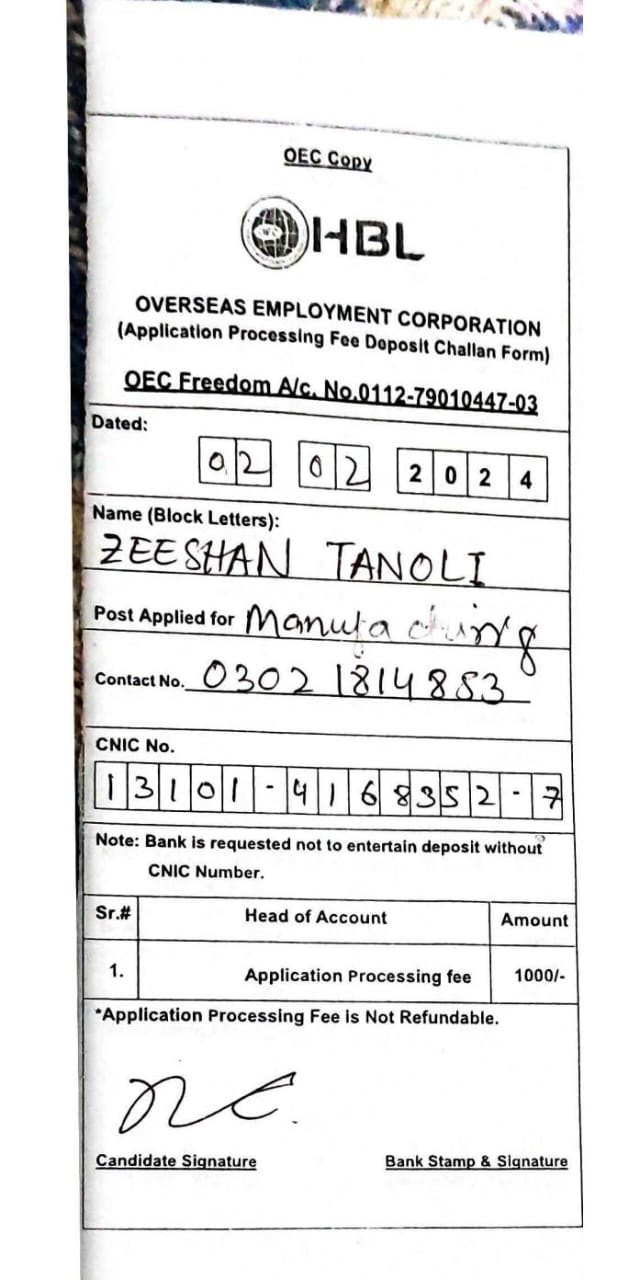 OEC Copy
HBL
OVERSEAS EMPLOYMENT CORPORATION
(Application Processing Fee Deposit Challan Form)
OEC Freedom A/c. No.0112-79010447-03
Dated:
02 02 2024
Name (Block Letters):
ZEESHAN TANOLI
Post Applied for Manufacturing
Contact No. 03021814853
CNIC No.
13101-4168352-7
Note: Bank is requested not to entertain deposit without
CNIC Number.
Sr.# Head of Account Amount
1. Application Processing fee 1000/-
*Application Processing Fee is Not Refundable.
Candidate Signature Bank Stamp & Signature